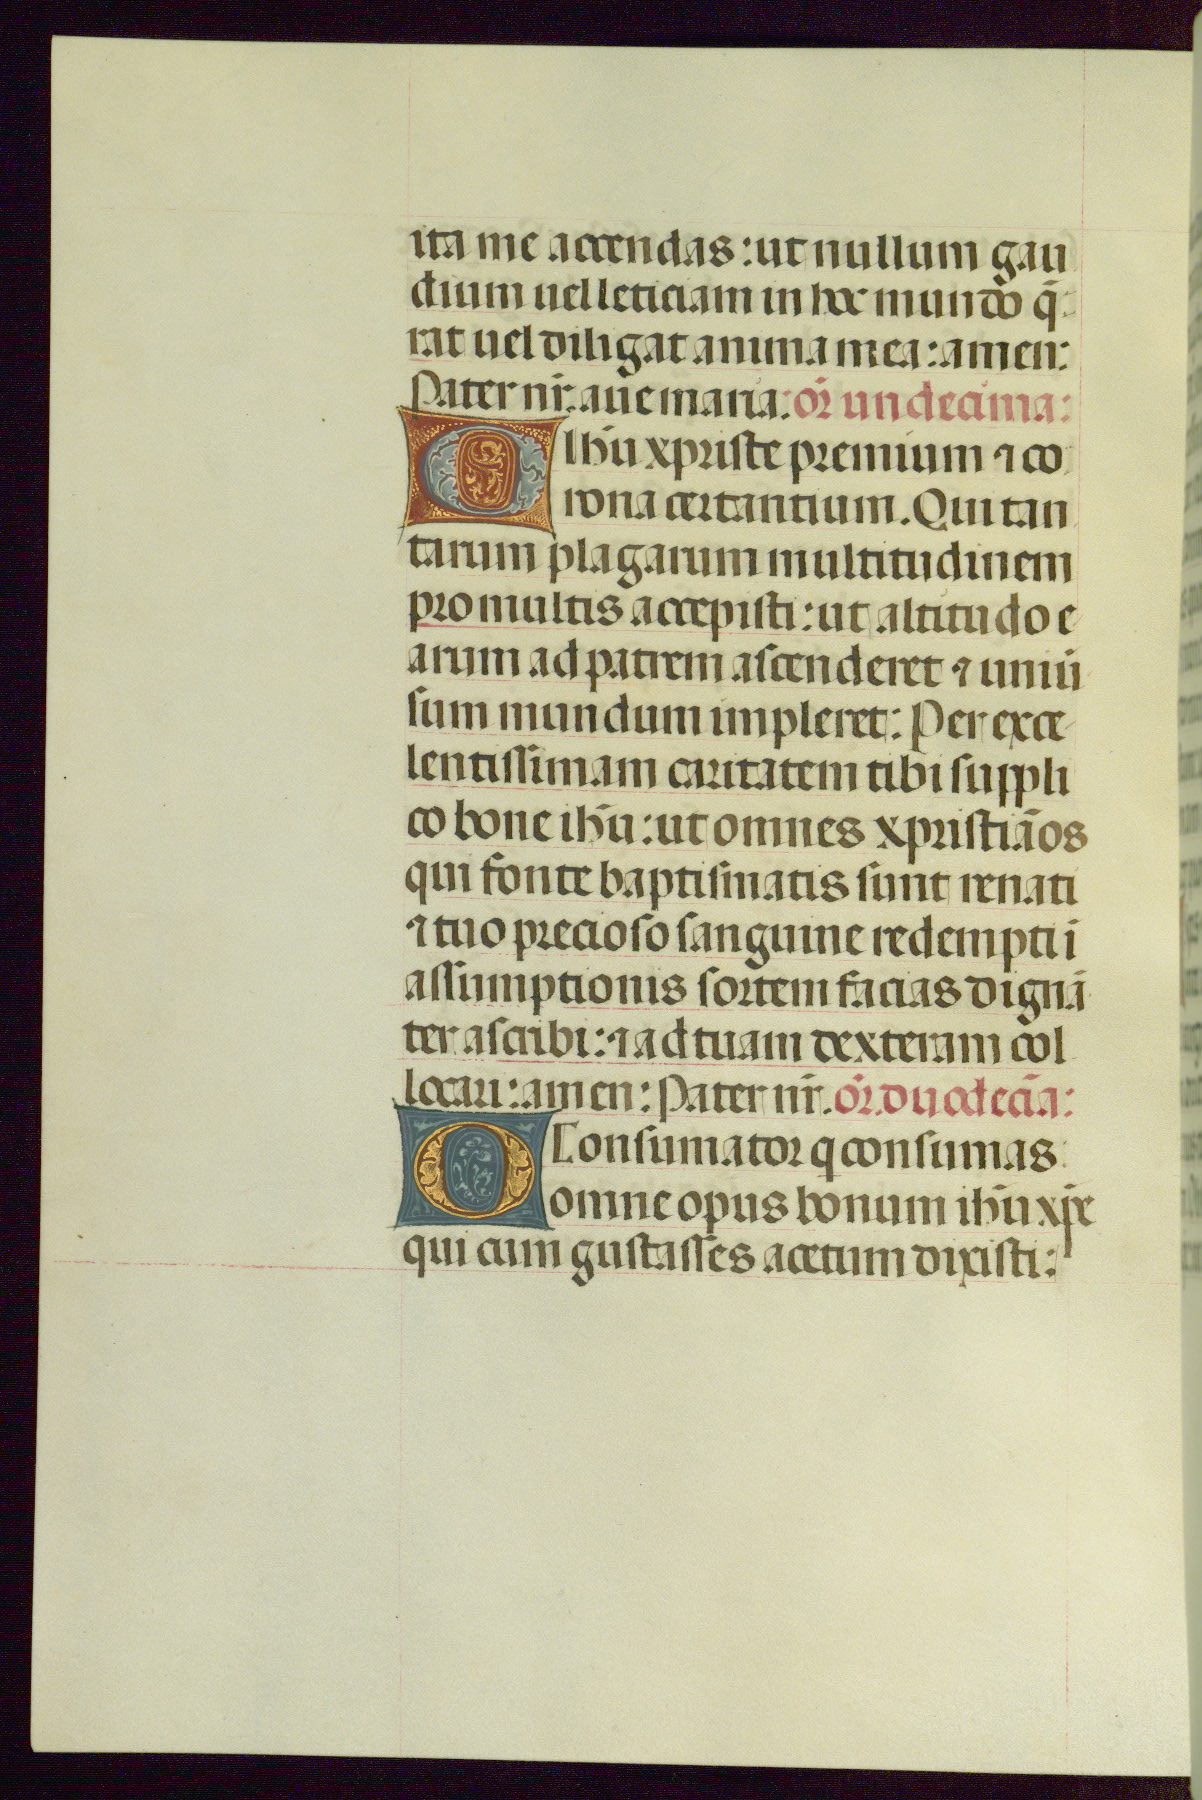 ita me accendas: ut nullum gau
dium uel leticiam in hoc mundo q̄
rat uel diligat anima mea: amen:
Pater nr̄. aue maria. or̄ undecima:
O Ihū xpriste premium ⁊ co
rona certantium. Qui tan
tarum plagarum multitudinem
pro multis accepisti: ut altitudo e
arum ad patrem ascenderet ⁊ uniū
sum mundum impleret: Per exce
lentissimam caritatem tibi suppli
co bone ihū: ut omnes xpristiāos
qui fonte baptismatis sunt renati
⁊ tuo precioso sanguine redempti ī
assumptionis sortem facias dignā
ter ascribi: ⁊ ad tuam dexteram col
locari: amen: Pater nr̄. or̄. duodecīa:
O Consumator q consumas
omne opus bonum ihū xp̄e
qui cum gustasses acetum dixisti: